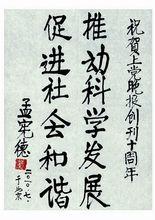 祝贺上党晚报创刊十周年
推动科学发展
促进社会和谐
孟宪德
二〇〇七年